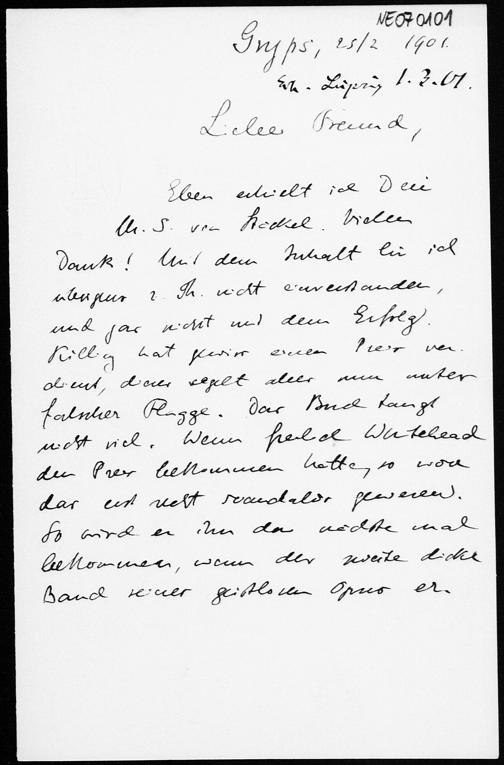 NE070101
Gryps, 25/2 1901.
Erh. Leipzig 1.3.01.
Lieber Freund,
Eben erhielt ich Dein
M.S. von Stäckel. Vielen
Dank! Mit dem Inhalt bin ich
übrigens z. Th. nicht einverstanden,
und gar nicht mit dem Erfolg.
Killing hat gewiss einen Preis ver-
dient, dieser segelt aber nun unter
falscher Flagge. Das Buch taugt
nicht viel. Wenn freilich Whitehead
den Preis bekommen hätte, so wäre
das erst recht scandalös gewesen.
So wird er ihn das nächste mal
bekommen, wenn der zweite dicke
Band seines geistlosen Opus er-